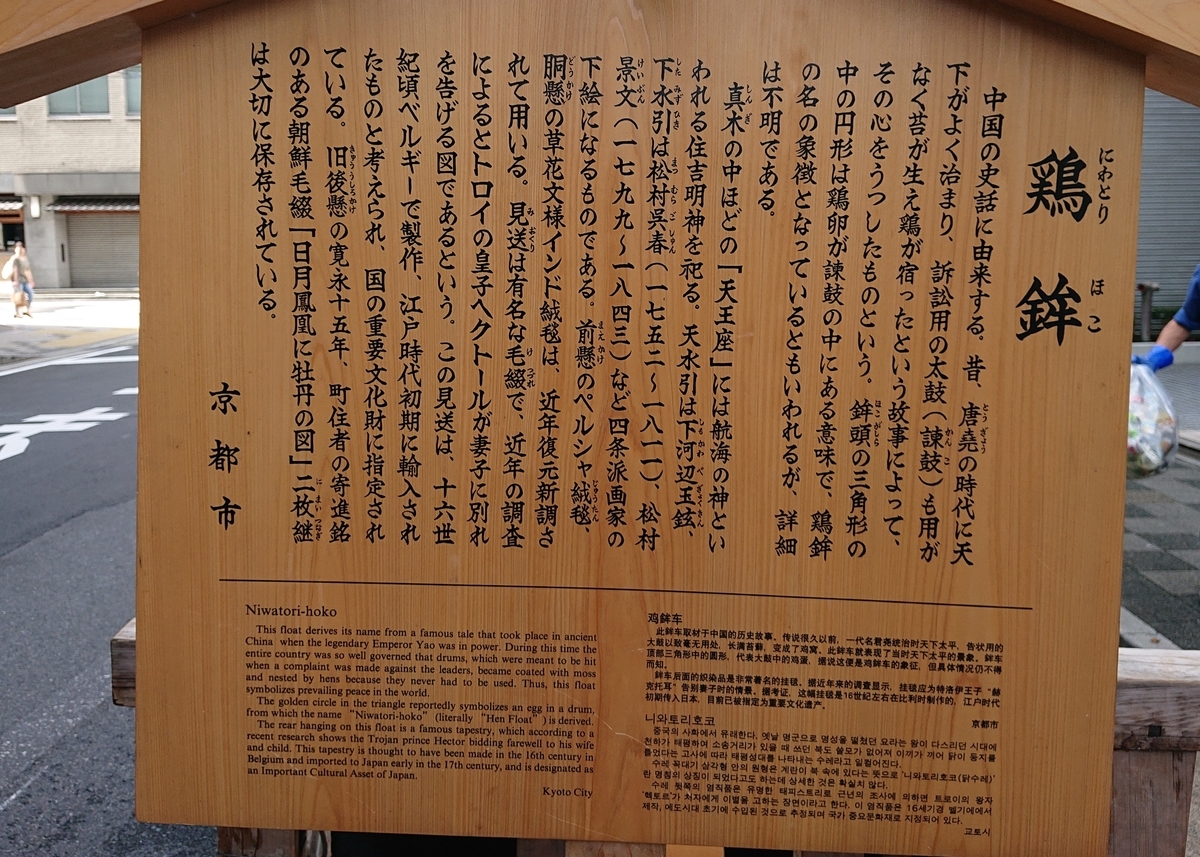 にわとり ほこ
鶏鉾
中国の史話に由来する。昔、唐堯の時代に天
下がよく治まり、訴訟用の太鼓（諫鼓）も用が
なく苔が生え鶏が宿ったという故事によって、
その心をうつしたものという。鉾頭の三角形の
中の円形は鶏卵が諫鼓の中にある意味で、鶏鉾
の名の象徴となっているともいわれるが、詳細
は不明である。
真木の中ほどの「天王座」には航海の神とい
われる住吉明神を祀る。天水引は下河辺玉鉉、
下水引は松村呉春（一七五二～一八一一）、松村
景文（一七九九～一八四三）など四条派画家の
下絵になるものである。前懸のペルシャ絨毯、
胴懸の草花文様インド絨毯は、近年復元新調さ
れて用いる。見送は有名な毛綴で、近年の調査
によるとトロイの皇子ヘクトールが妻子に別れ
を告げる図であるという。この見送は、十六世
紀頃ベルギーで製作、江戸時代初期に輸入され
たものと考えられ、国の重要文化財に指定され
ている。旧後懸の寛永十五年、町住者の寄進銘
のある朝鮮毛綴「日月鳳凰に牡丹の図」二枚継
は大切に保存されている。
京都市
Niwatori-hoko
This float derives its name from a famous tale that took place in ancient
China when the legendary Emperor Yao was in power. During this time the
entire country was so well governed that drums, which were meant to be hit
when a complaint was made against the leaders, became coated with moss
and nested by hens because they never had to be used. Thus, this float
symbolizes prevailing peace in the world.
The golden circle in the triangle reportedly symbolizes an egg in a drum,
from which the name “Niwatori-hoko” (literally “Hen Float”) is derived.
The rear hanging on this float is a famous tapestry, which according to a
recent research shows the Trojan prince Hector bidding farewell to his wife
and child. This tapestry is thought to have been made in the 16th century in
Belgium and imported to Japan early in the 17th century, and is designated as
an Important Cultural Asset of Japan.
Kyoto City
鸡鉾车
此鉾车取材于中国的历史故事。传说很久以前，一代名君尧统治时天下太平，告状用的
大鼓以致毫无用处，长满苔藓，变成了鸡窝。此鉾车就表现了当时天下太平的景象。鉾车
顶部三角形中的圆形，代表大鼓中的鸡蛋，据说这便是鸡鉾车的象征，但具体情况仍不得
而知。
鉾车后面的织染品是非常著名的挂毯，据近年来的调查显示，挂毯应为特洛伊王子“赫
克托耳”告别妻子时的情景。据考证，这幅挂毯是16世纪左右在比利时制作的，江户时代
初期传入日本，目前已被指定为重要文化遗产。
京都市
니와토리호코
중국의 사화에서 유래한다. 옛날 명군으로 명성을 떨쳤던 요라는 왕이 다스리던 시대에
천하가 태평하여 소송거리가 있을 때 쓰던 북도 쓸모가 없어져 이끼가 끼어 닭이 둥지를
틀었다는 고사에 따라 태평성대를 나타내는 수레라고 일컬어진다.
수레 꼭대기 삼각형 안의 원형은 계란이 북 속에 있다는 뜻으로 '니와토리호코(닭수레)'
란 명칭의 상징이 되었다고도 하는데 상세한 것은 확실치 않다.
수레 뒷쪽의 염직품은 유명한 태피스트리로 근년의 조사에 의하면 트로이의 왕자
'헥토르'가 처자에게 이별을 고하는 장면이라고 한다. 이 염직품은 16세기경 벨기에에서
제작, 에도시대 초기에 수입된 것으로 추정되며 국가 중요문화재로 지정되어 있다.
교토시